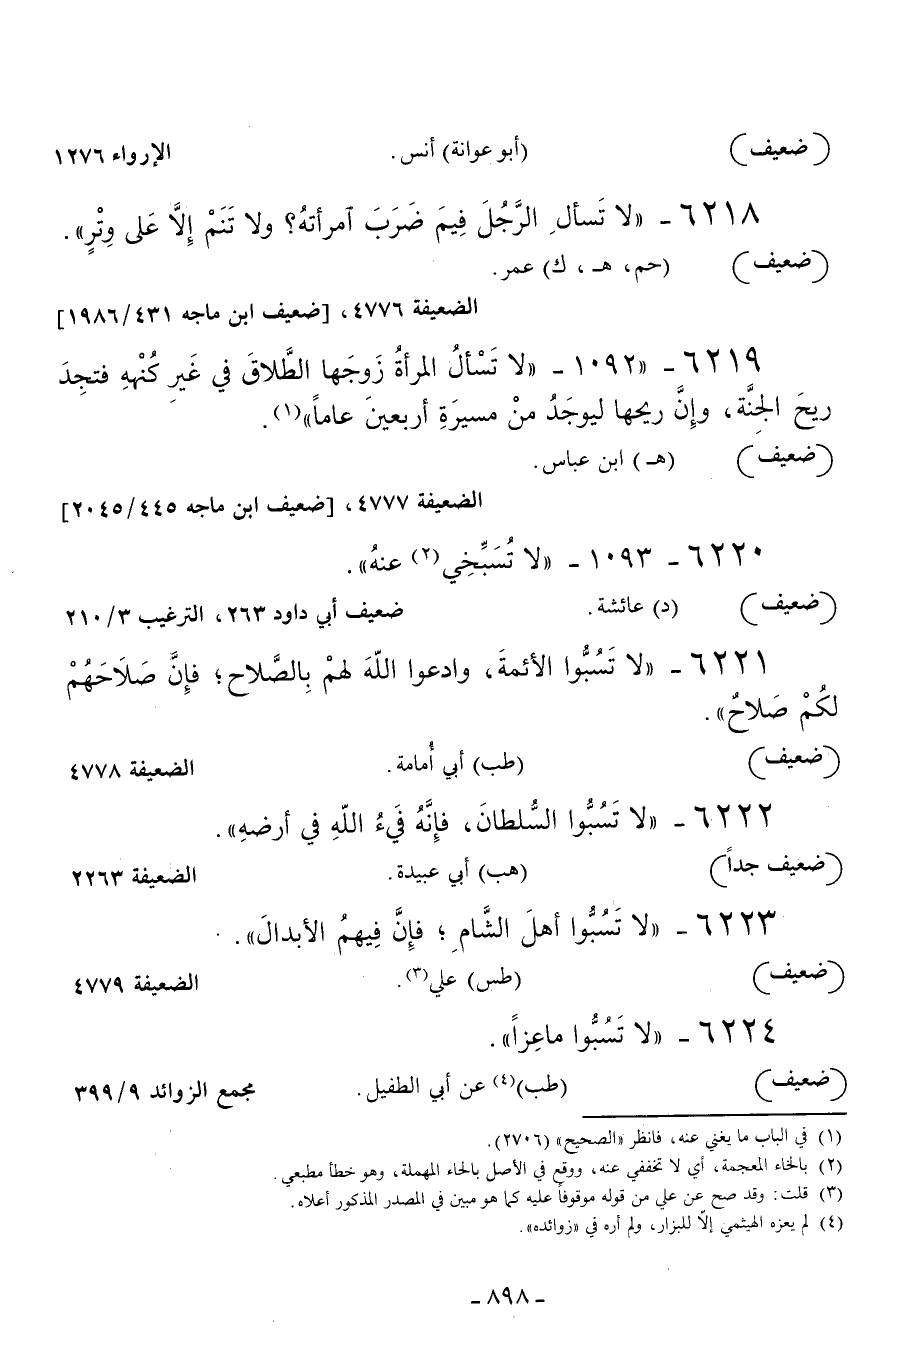 (ضعيف) (أبو عوانة) أنس. الإرواء ١٢٧٦
٦٢١٨ - «لا تَسألِ الرَّجُلَ فِيمَ ضَرَبَ آمرأتهُ؟ ولا تَنَمْ إِلَّا عَلى وِتْرٍ».
(ضعيف) (حم، هـ، ك) عمر.
الضعيفة ٤٧٧٦، [ضعيف ابن ماجه ١٩٨٦/٤٣١]
٦٢١٩ - «١٠٩٢ - «لا تَسْألُ المرأةُ زَوجَها الطَّلاقَ في غَيرِ كُنْههِ فتجِدَ
ريحَ الجنَّة، وإِنَّ ريحها ليوجَدُ منْ مسيرَةِ أربعينَ عاماً»(١).
(ضعيف) (هـ) ابن عباس.
الضعيفة ٤٧٧٧، [ضعيف ابن ماجه ٢٠٤٥/٤٤٥]
٦٢٢٠ - ١٠٩٣ - «لا تُسَبِّخِي(٢) عنهُ».
(ضعيف) (د) عائشة. ضعيف أبي داود ٢٦٣، الترغيب ٢١٠/٣
٦٢٢١ - «لا تَسُبُّوا الأئمةَ، وادعوا اللّهَ لهمْ بِالصَّلاح؛ فإِنَّ صَلَاحَهُمْ
لكُمْ صَلاحٌ».
(ضعيف) (طب) أبي أُمامة. الضعيفة ٤٧٧٨
٦٢٢٢ - «لا تَسُبُّوا السُّلطانَ، فإِنَّهُ فَيءُ اللّهِ في أرضهِ».
(ضعيف جداً) (هب) أبي عبيدة. الضعيفة ٢٢٦٣
٦٢٢٣ - «لا تَسُبُّوا أهلَ الشَّامِ؛ فإِنَّ فِيهمُ الأبدالَ».
(ضعيف) (طس) علي(٣). الضعيفة ٤٧٧٩
٦٢٢٤ - «لا تَسُبُّوا ماعِزاً».
(ضعيف) (طب)(٤) عن أبي الطفيل. مجمع الزوائد ٣٩٩/٩
(١) في الباب ما يغني عنه، فانظر «الصحيح» (٢٧٠٦).
(٢) بالخاء المعجمة، أي لا تخففي عنه، ووقع في الأصل بالحاء المهملة، وهو خطأ مطبعي.
(٣) قلت: وقد صح عن علي من قوله موقوفاً عليه كما هو مبين في المصدر المذكور أعلاه.
(٤) لم يعزه الهيثمي إلّا للبزار، ولم أره في «زوائده».
- ٨٩٨ -